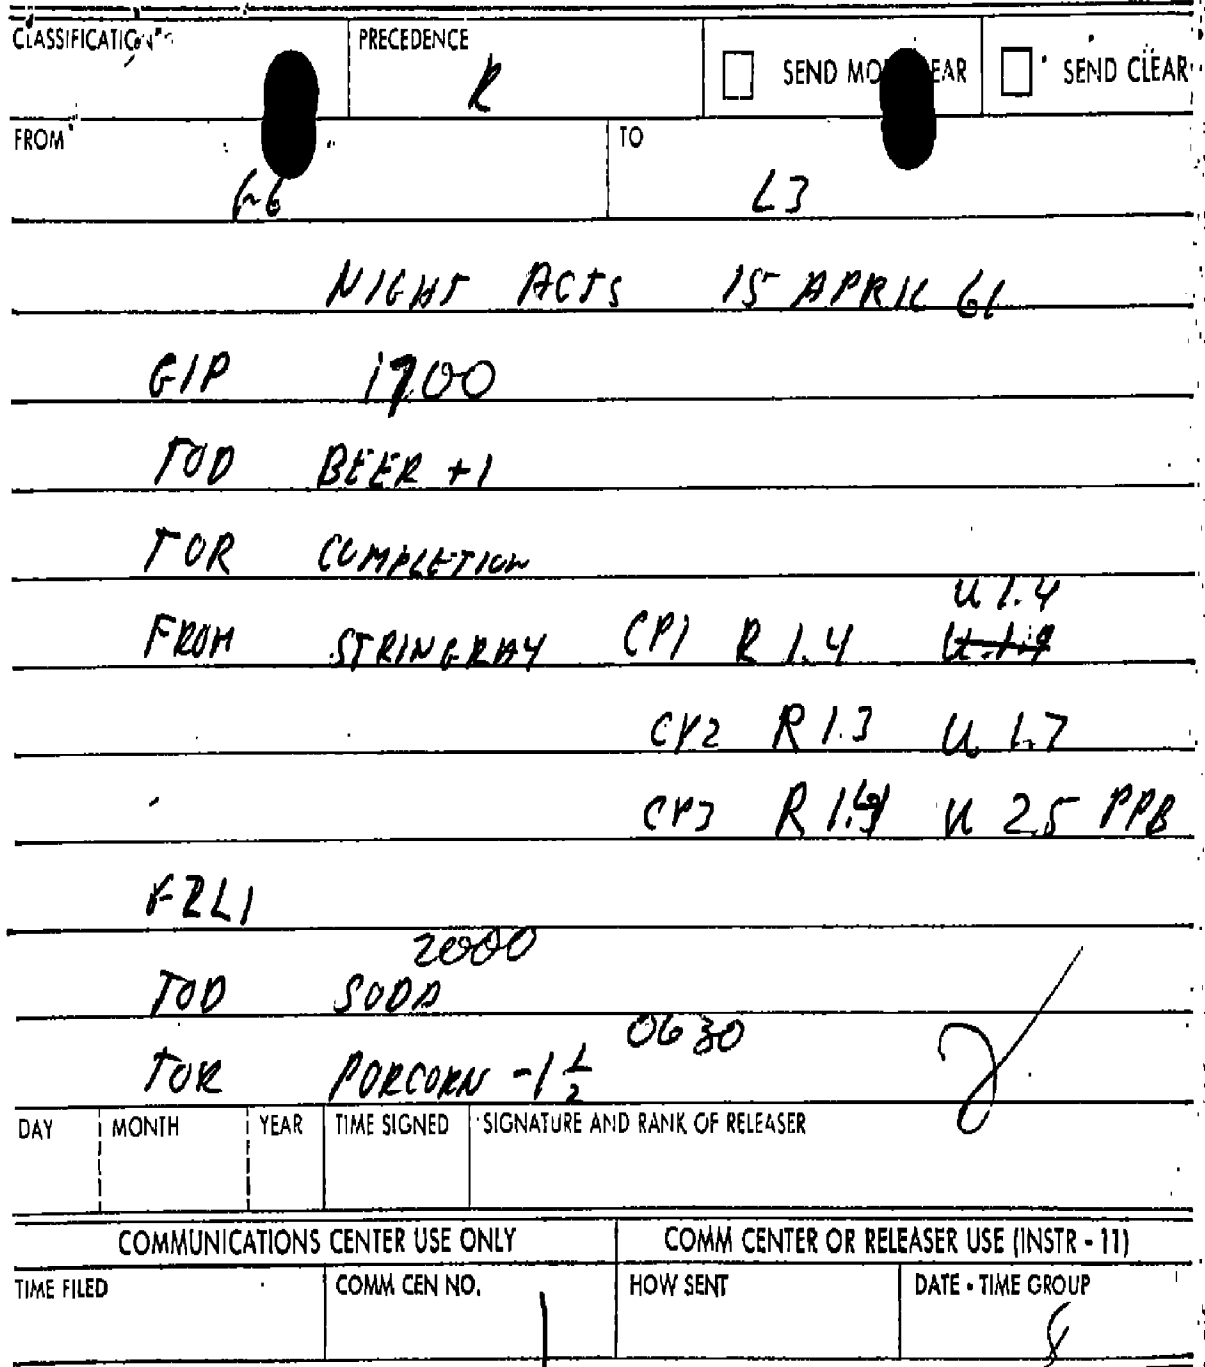 CLASSIFICATION PRECEDENCE SEND MO EAR SEND CLEAR
R
FROM TO
G-6 L3
NIGHT ACTS 15 APRIL 61
GIP 1900
TOD BEER +1
TOR COMPLETION
U 1.4
FROM STRINGRAY CP1 R 1.4
CP2 R 1.3 U 1.7
CP3 R U 2.5 PPB
2000
TOD SODA
0630
TOR PORCORN -1 1/2
DAY MONTH YEAR TIME SIGNED SIGNATURE AND RANK OF RELEASER
COMMUNICATIONS CENTER USE ONLY COMM CENTER OR RELEASER USE (INSTR - 11)
TIME FILED COMM CEN NO. HOW SENT DATE - TIME GROUP